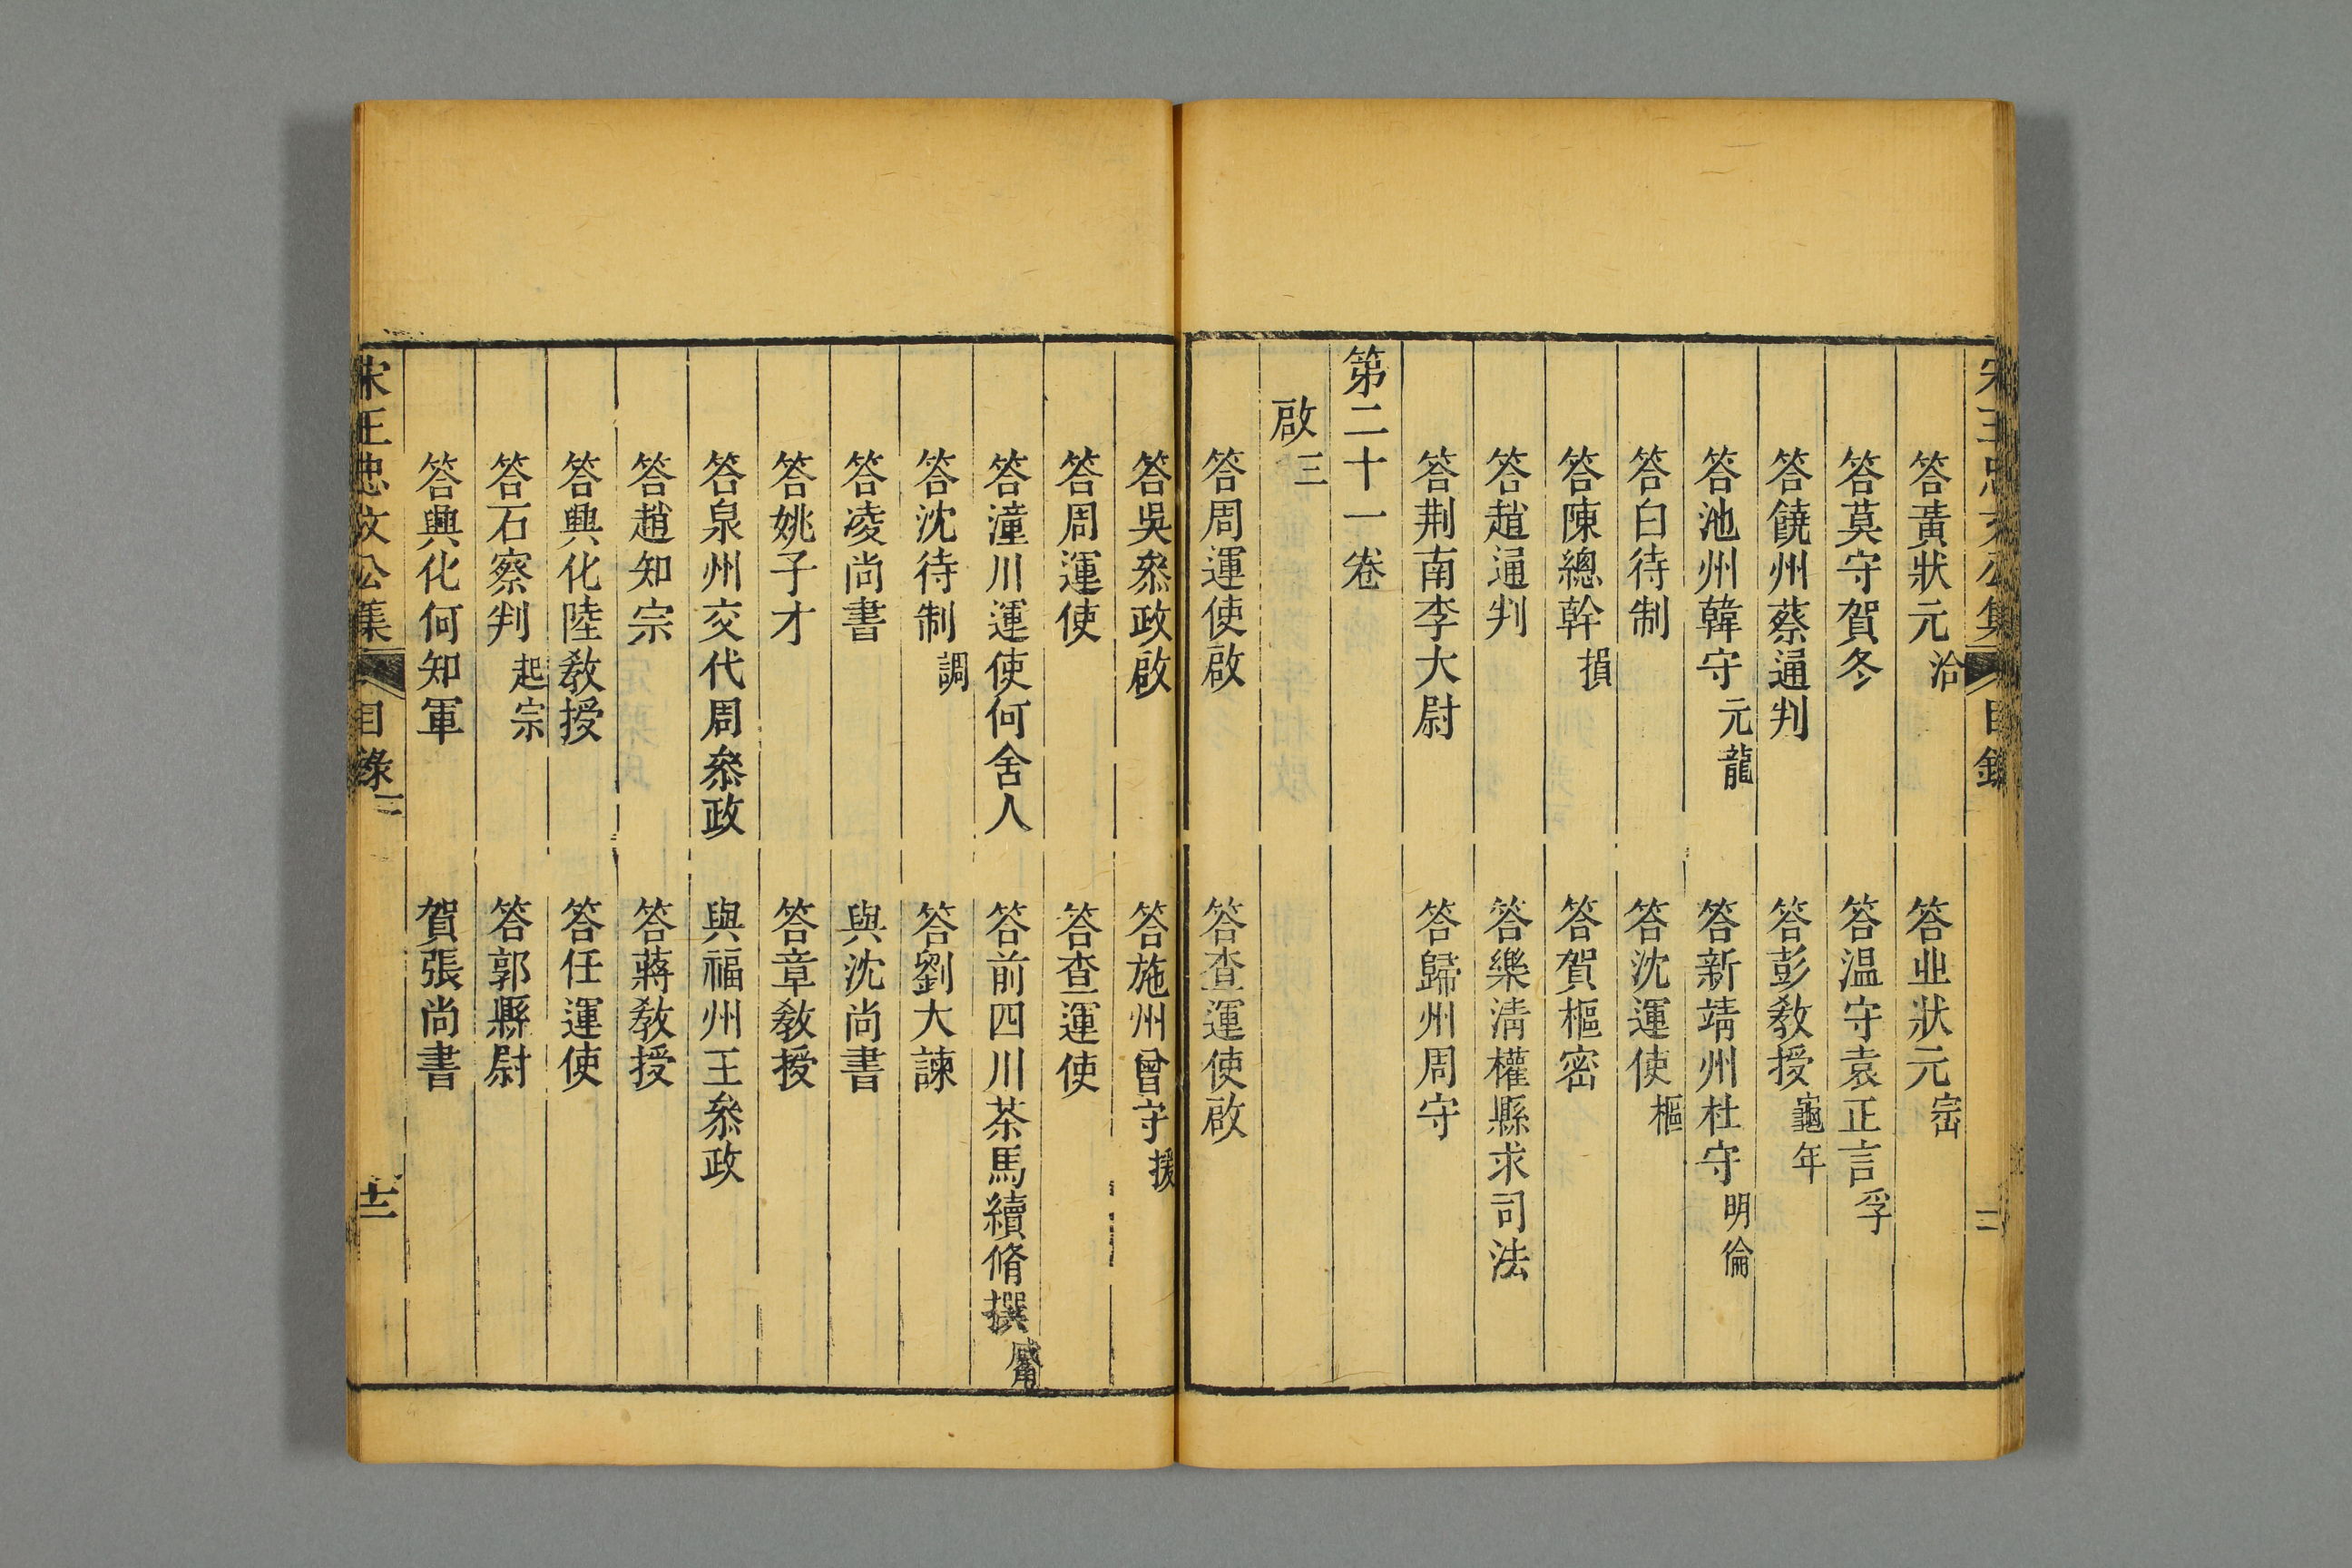 宋王忠文公集 目錄
答黃狀元洽 答丠狀元崈
答莫守賀冬 答温守袁正言孚
答饒州蔡通判 答彭敎授龜年
答池州韓守元龍 答新靖州杜守明倫
答白待制 答沈運使樞
答陳總幹損 答賀樞密
答趙通判 答樂淸權縣求司法
答荆南李大尉 答歸州周守
第二十一卷
啟三
答周運使啟 答查運使啟
答吳叅政啟 答施州曾守援
答周運使 答查運使
答潼川運使何舍人 答前四川茶馬續脩撰觱
答沈待制調 答劉大諫
答凌尚書 與沈尚書
答姚子才 答章敎授
答泉州交代周叅政 與福州王叅政
答趙知宗 答蔣敎授
答興化陸敎授 答任運使
答石察判起宗 答郭縣尉
答興化何知軍 賀張尚書
宋王忠文公集 目錄二 十二